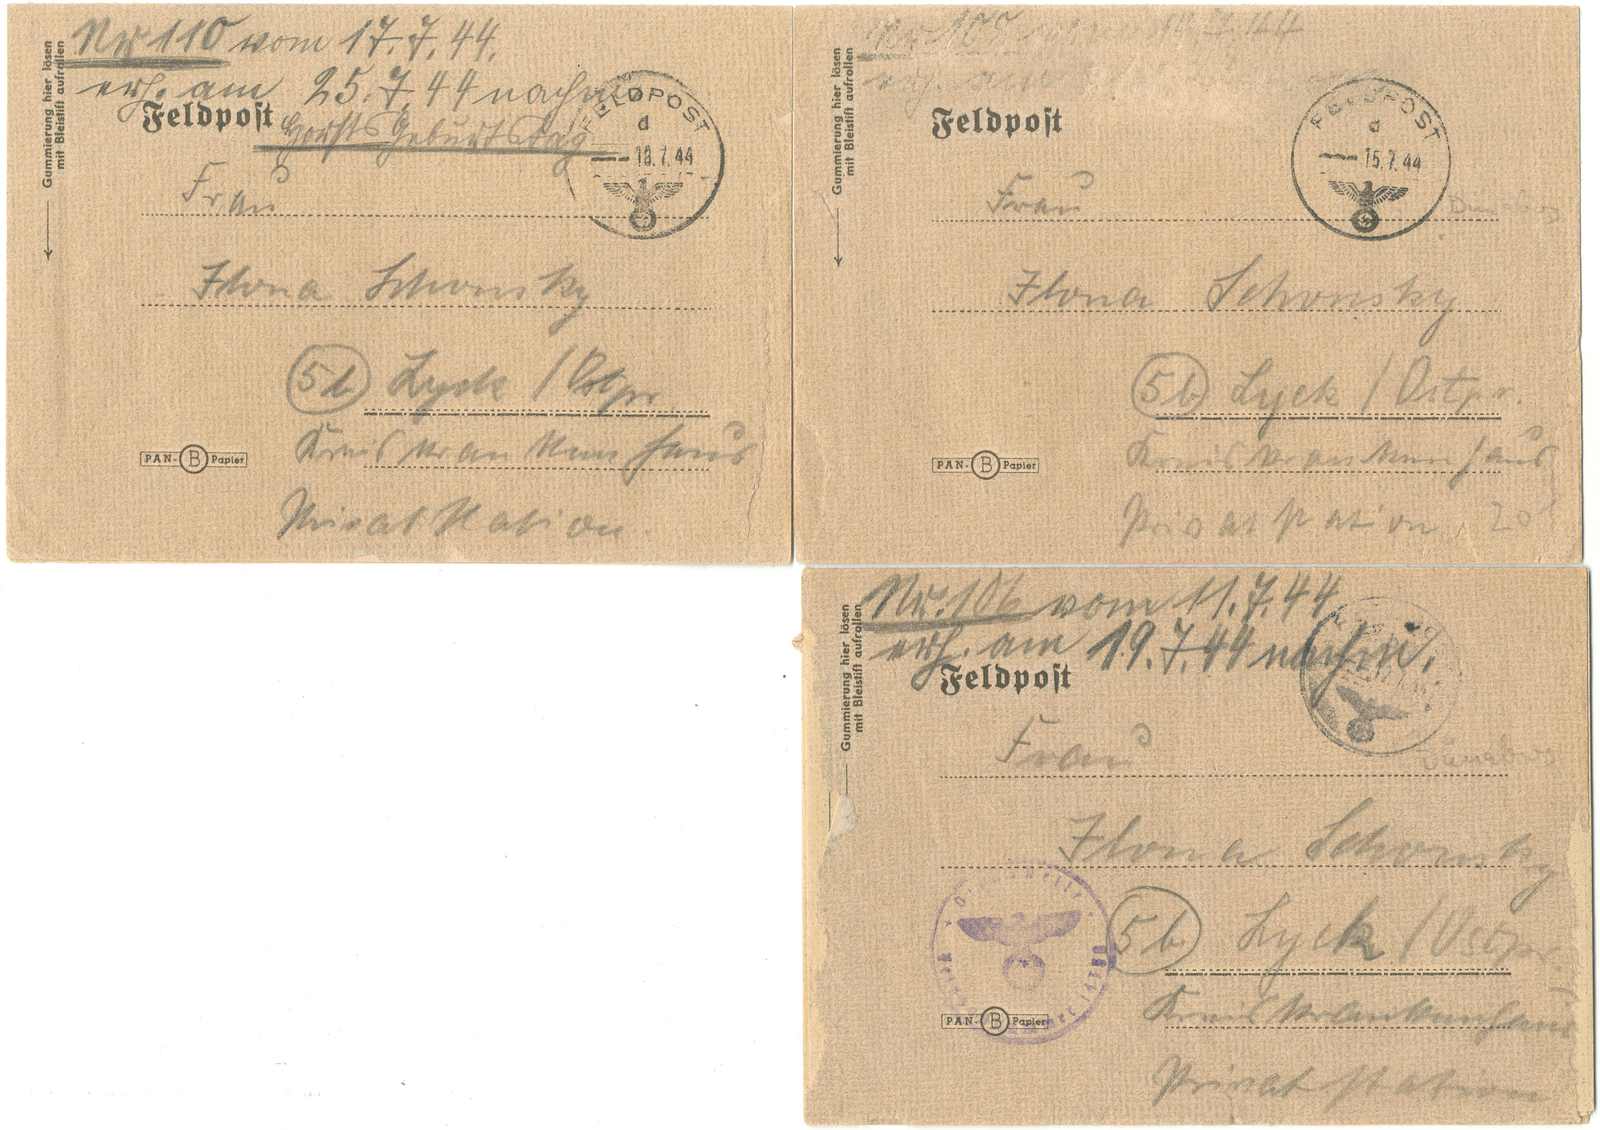 Nr 110 vom 17.7.44.
erh. am 25.7.44 nachm.
Horsts Geburtstag
Gummierung hier lösen
mit Bleistift aufrollen
Feldpost
FELDPOST
d
18.7.44
Frau
Ilona Schonsky
5b Lyck / Ostpr.
Kreiskrankenhaus
Privatstation.
PAN-B Papier
14.7.44
erh. am
Gummierung hier lösen
mit Bleistift aufrollen
Feldpost
FELDPOST
d
15.7.44
Frau
Ilona Schonsky
5b Lyck / Ostpr.
Kreiskrankenhaus
Privatstation 20
PAN-B Papier
Nr. 106 vom 11.7.44
erh. am 19.7.44 nachm.
Gummierung hier lösen
mit Bleistift aufrollen
Feldpost
Frau
Ilona Schonsky
5b Lyck / Ostpr.
Kreiskrankenhaus
Privatstation
PAN-B Papier